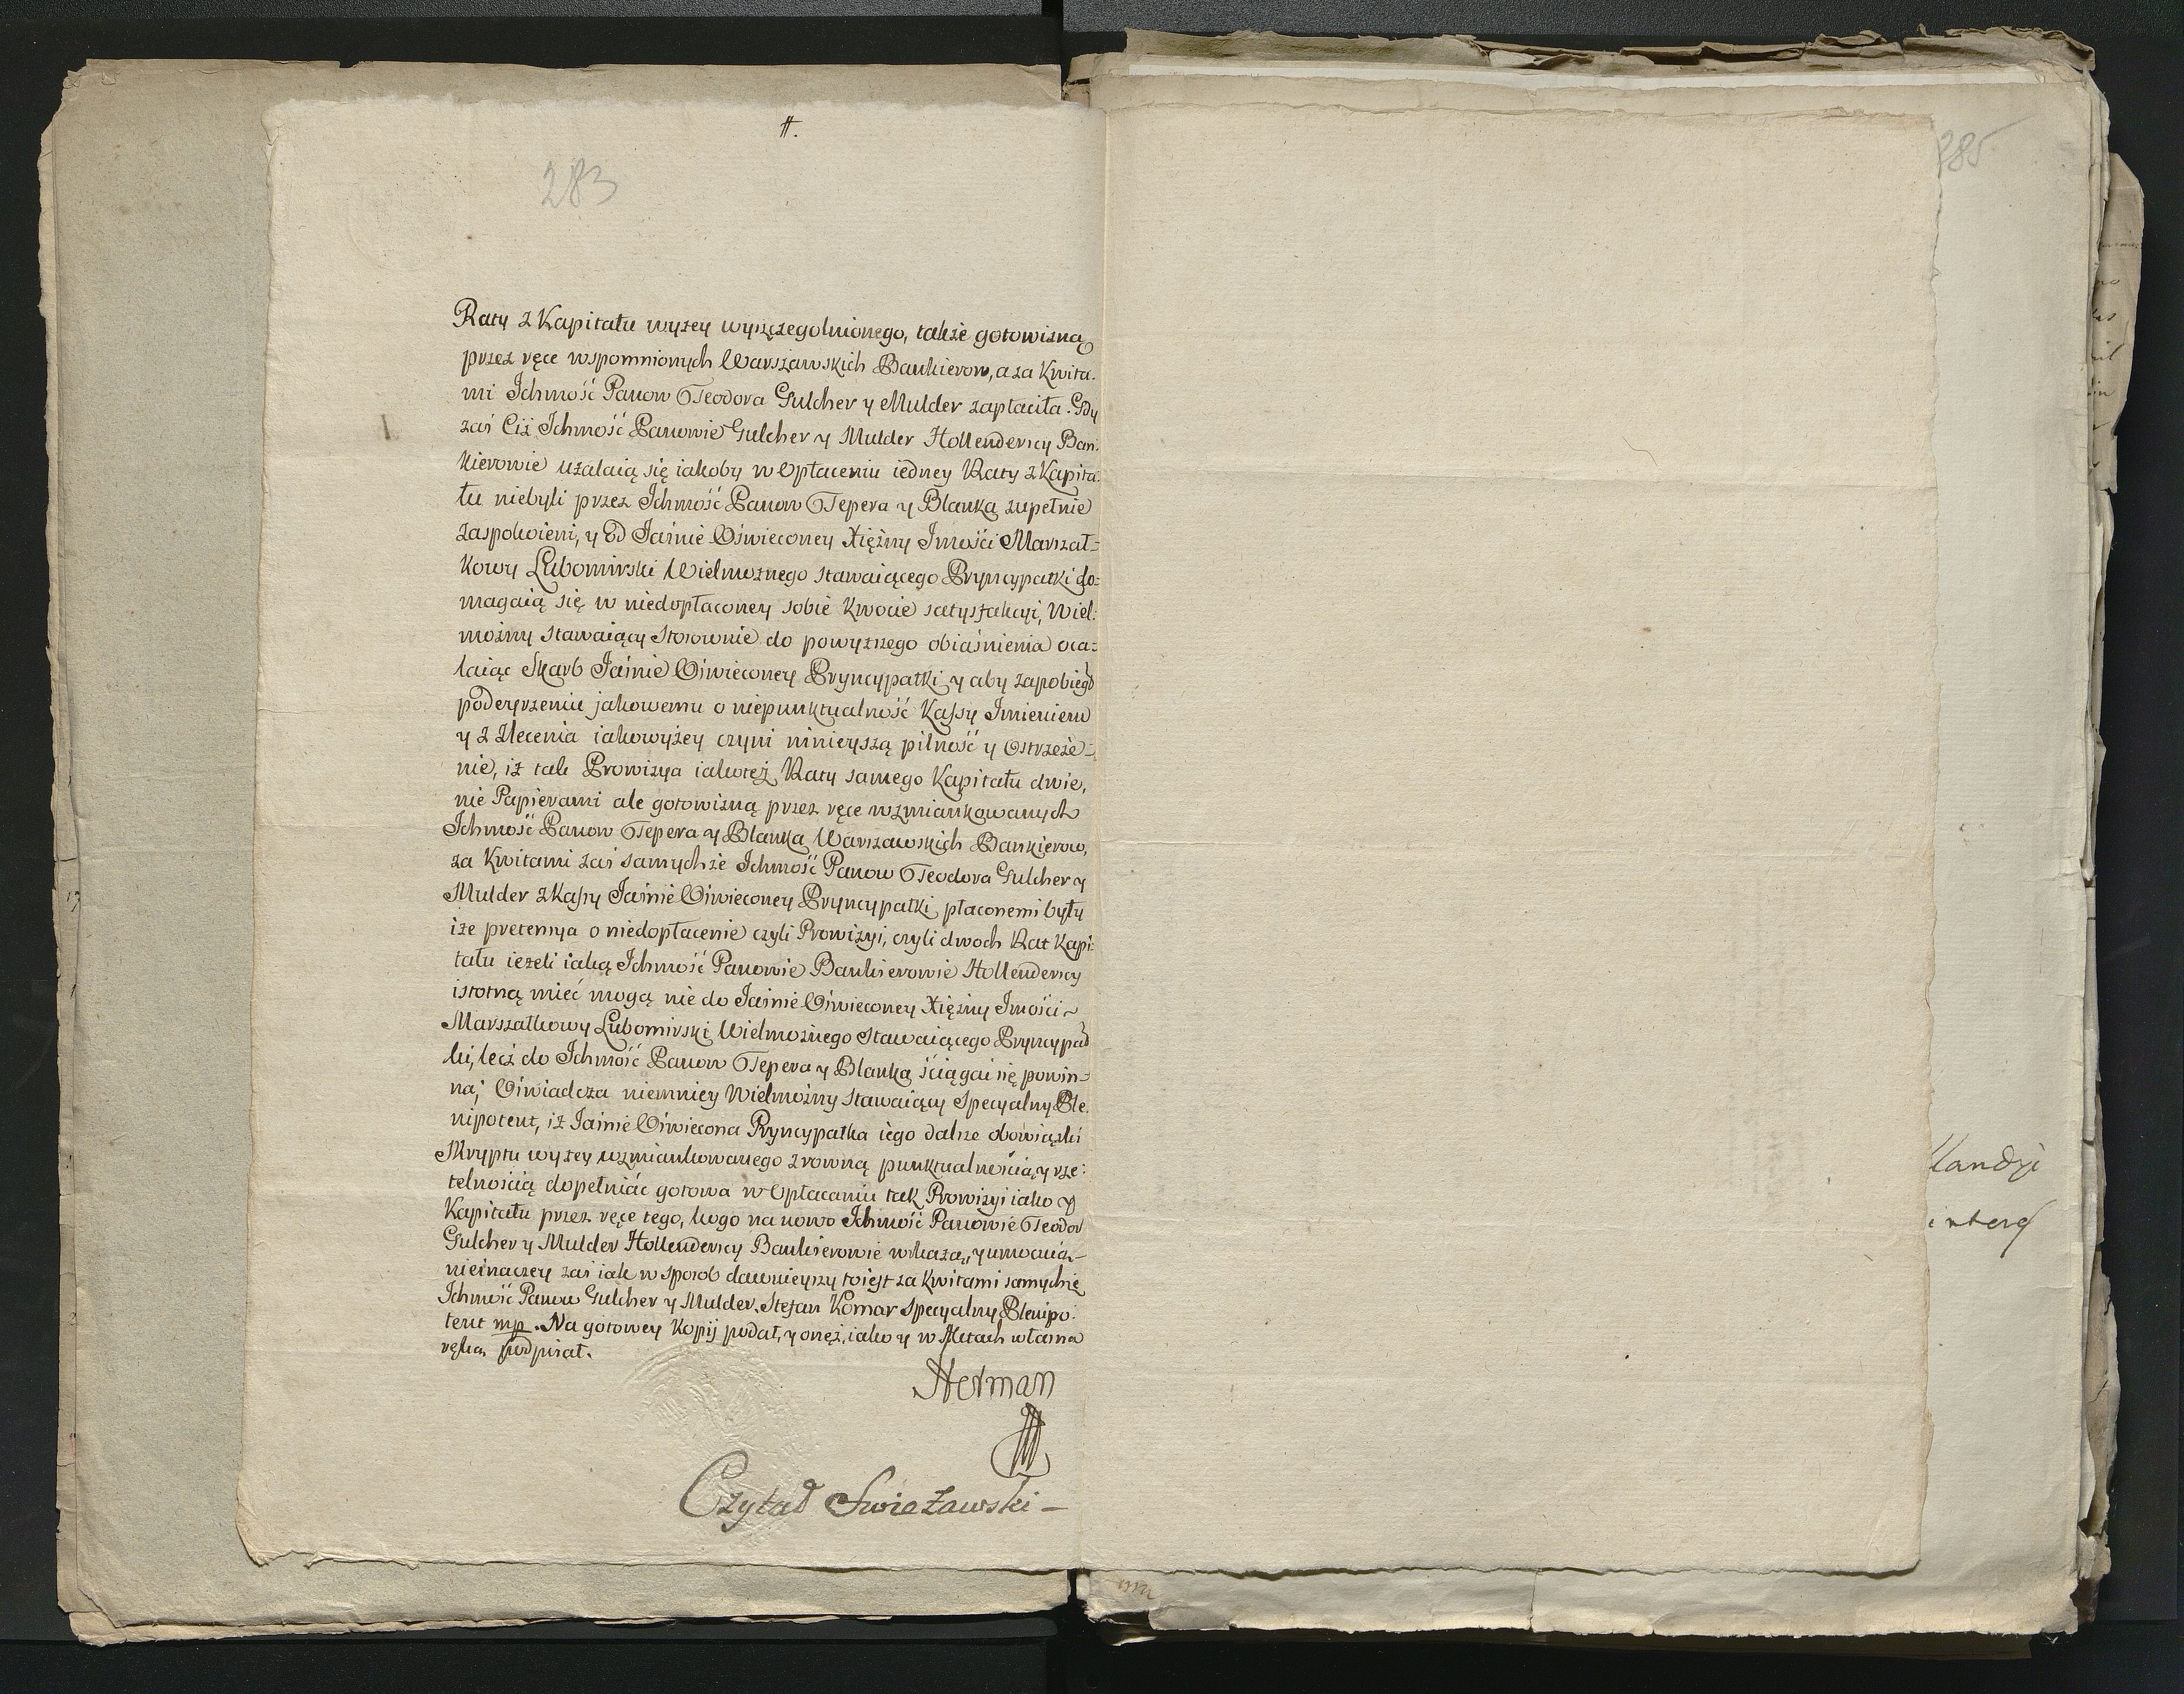 #.
283
285
Raty z Kapitału wyżey wyszczegolnionego, także gotowizną
przez ręce wspomnionych Warszawskich Bankierow, a za Kwita-
mi Ichmość Panow Teodora Gulcher y Mulder zapłaciła. Gdy
zaś Ciż Ichmość Panowie Gulcher y Mulder Hollenderscy Ban-
kierowie użalaią się iakoby w Opłaceniu iedney Raty z Kapita-
łu niebyli przez Ichmość Panow Tepera y Blanka zupełnie
zaspokoieni, y Od Jaśnie Oświeconey Xiężny Jmości Marszał=
kowy Lubomirski Wielmożnego stawaiącego Pryncypałki do=
magaią się w niedopłaconey sobie kwocie satysfakcyi, Wiel-
możny stawaiący stosownie do powyższego obiaśnienia oca=
laiąc Skarb Jaśnie Oświeconey Pryncypałki y aby zapobiegł
podeyrzeniu jakowemu o niepunktualność Kassy Imieniem
y z Zlecenia iakowyżey czyni ninieyszą pilność y Ostrzeże=
nie, iż tak Prowizya iakoteż Raty samego Kapitału dwie,
nie Papierami ale gotowizną przez ręce wzmiankowanych
Ichmość Panow Tepera y Blanka Warszawskich Bankierow,
za Kwitami zaś samychże Ichmość Panow Teodora Gulcher y
Mulder z Kassy Jaśnie Oświeconey Pryncypałki płaconemi były
iże pretensya o niedopłacenie czyli Prowizyi, czyli dwoch Rat Kapi-
tału ieżeli iaką Ichmość Panowie Bankierowie Hollenderscy
istotną mieć mogą nie do Jaśnie Oświeconey Xiężny Jmości
Marszałkowy Lubomirski Wielmożnego Stawaiącego Pryncypał
ki, lecz do Ichmość Panow Tepera y Blanka ściągai się powin=
na; Oświadcza niemniey Wielmożny stawaiący Specyalny Ple-
nipotent, iż Jaśnie Oświecona Pryncypałka iego dalsze obowiązki
Skryptu wyżey wzmiankowanego z rowną punktualnością, y rze-
telnością dopełniać gotowa w Opłacaniu tak Prowizyi iako y
Kapitału przez ręce tego, kogo na nowo Ichmość Panowie Teodor
Gulcher y Mulder Hollenderscy Bankierowie wskażą, y umocnią
nieinaczey zaś iak w sposob dawnieyszy toiest za Kwitami samychże
Ichmość Panow Gulcher y Mulder. Stefan Komar Specyalny Plenipo-
tent mp. Na gotowey Kopij podał, y onęż, iako y w Aktach własną
ręką podpisał.
Herman
Czytał Swieżawski -